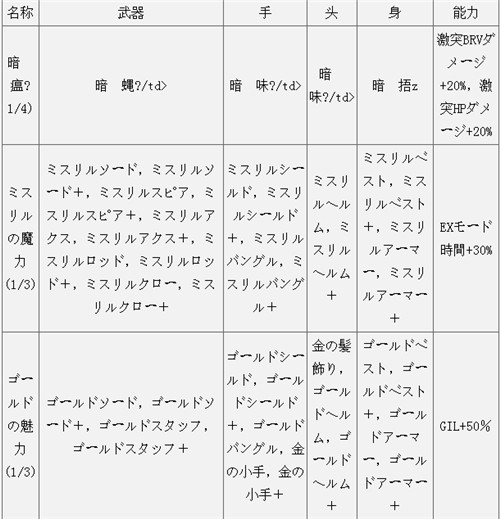 名称 武器 手 头 身 能力
暗
瘟?
1/4)
暗 蝿?/td>
暗 味?/td>
暗
味?/td>
暗 捂z
激突BRVダ
メージ
+20%，激
突HPダメ
ージ+20%
ミス
リル
の魔
力
(1/3)
ミスリルソード，ミスリルソ
ード＋，ミスリルスピア，ミ
スリルスピア＋，ミスリルア
クス，ミスリルアクス＋，ミ
スリルロッド，ミスリルロッ
ド＋，ミスリルクロー，ミス
リルクロー＋
ミスリルシー
ルド，ミスリ
ルシールド
＋，ミスリル
バングル，ミ
スリルバング
ル＋
ミスリ
ルヘル
ム，ミ
スリル
ヘルム
＋
ミスリルベ
スト，ミス
リルベスト
＋，ミスリ
ルアーマ
ー，ミスリ
ルアーマー
＋
EXモード
時間+30%
ゴー
ルド
の魅
力
(1/3)
ゴールドソード，ゴールドソ
ード＋，ゴールドスタッフ，
ゴールドスタッフ＋
ゴールドシー
ルド，ゴール
ドシールド
＋，ゴールド
バングル，金
の小手，金の
小手＋
金の髪
飾り，
ゴール
ドヘル
ム，ゴ
ールド
ヘルム
＋
ゴールドベ
スト，ゴー
ルドベスト
＋，ゴール
ドアーマ
ー，ゴール
ドアーマー
＋
GIL+50%